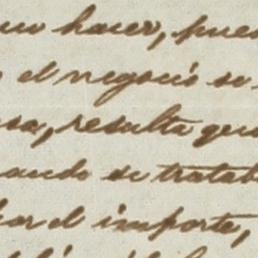 hacer, pues
el negocio se
resulta que
ando se tratab
ar el importe,